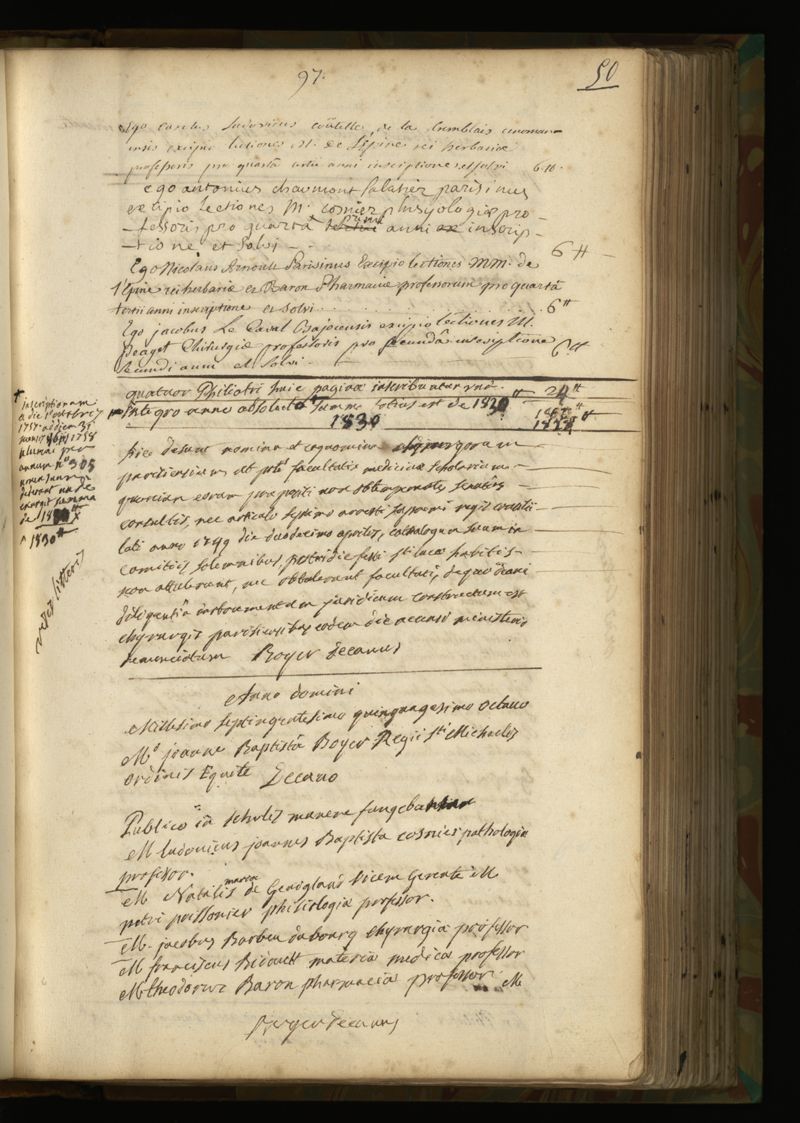 97.
50
Ego carolus ludovicus de la cenoman-
ensis excipio lectiones M. de l'épine rei herbariae
professoris pro quarta anni inscriptione et solvi 6-10.
Ego antonius chaumont sabatier parisinus
excipio lectiones M. cosnier physyologiae pro-
-fessoris pro quarta primi anni inscrip-
-tione et solvi - 6 ₶
Ego Nicolaus Arnoult Parisinus Excipio lectiones MM. de
l'épine rei herbariae et Baron Pharmaciae professorum pro quartâ
tertii anni inscriptione et solvi . . . 6 ₶
Ego jacobus Le Bajocensis excipio lectiones M.
Chirurgiae professoris pro secundâ inscriptione
secundi anni et solvi 6 ₶
quatuor Philiatri huic paginae inscribuntur 24 ₶
Integro anno absoluto Summa totius est de 1830 ₶
1830
†
inscriptionum
a die
1757 ad diem 31
1758
annum n° 305
summa
de
1830 ₶
hic desunt nomina et cognomina chyrurgorum
parisiensium facultatis medicinae scholarium
quoniam eorum praepositi non obtemperantes senatûs
consultis, nec articulo septimo arresti supremi regis consilii
lati anno 1749 die duodecimo aprilis, catalogum suum in
comitiis solemnibus, postridie festi sti lucae habitis
non attulerunt, nec obtulerunt facultati, de quo decani
diligentiâ instrumentum juridicum constructum est
chyrurgis parisiensibus eodem die accensi ministerio
denunciatum Boyer decanus
Anno domini
Millesimo septingentesimo quinquagesimo octavo
Mo. joanne Baptistâ Boyer Regii sti Michaelis
ordinis Equite Decano
Publico in scholis munere fungebantur
M. ludovicus joannes Baptista cosnier pathologiae
professor.
M. Natalis maria de Gevigland vicem Gerente M
petri poissonier phisiologiae professor.
M. jacobus Barbeu dubourg chyrurgiae professor
M. franciscus Bidault materiae medicae professor
M. theodorus Baron pharmaciae professor. M
Boyer decanus